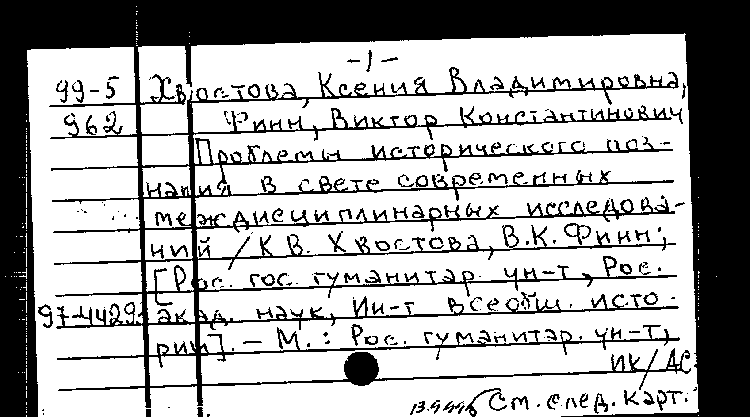 -1-
99-5 Хвостова, Ксения Владимировна,
962 Финн, Виктор Константинович
Проблемы исторического поз-
нания в свете современных
междисциплинарных исследова-
ний / К В. Хвостова, В.К. Финн;
[Рос. гос. гуманитар. ун-т, Рос.
97-4429 акад. наук, Ин-т всеобщ. исто-
рии]. - М. : Рос. гуманитар. ун-т,
ИК/АС
См. след. карт.